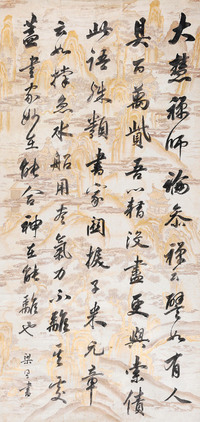 大慧禪師論參禪云譬如有人
具百萬貲吾籍沒盡更與索債
此語殊類書家關捩子米元章
云如撑急水船用盡氣力不離處
蓋書家妙在能合神在能離也 梁書